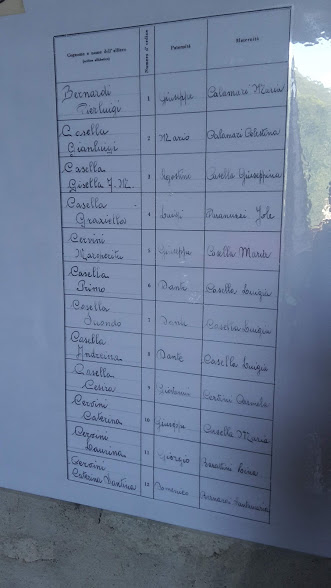 Cognome e nome dell'allievo Numero d'ordine Paternità Maternità
Bernardi
Pierluigi 1 Giuseppe Calamari Maria
Casella
Gianluigi 2 Mario Calamari Celestina
Casella
Gisella F. M. 3 Agostino Casella Giuseppina
Casella
Graziella 4 Luigi Jole
Cervini
Margherita 5 Giuseppe Casella Maria
Casella
Primo 6 Dante Casella Luigia
Casella
7 Dante Casella Luigia
Casella
Andreina 8 Dante Casella Luigia
Casella
9 Giovanni Carmela
Cervini
Caterina 10 Giuseppe Casella Maria
Cervini
Laurina 11 Giorgio
Cervini
Caterina 12 Domenico